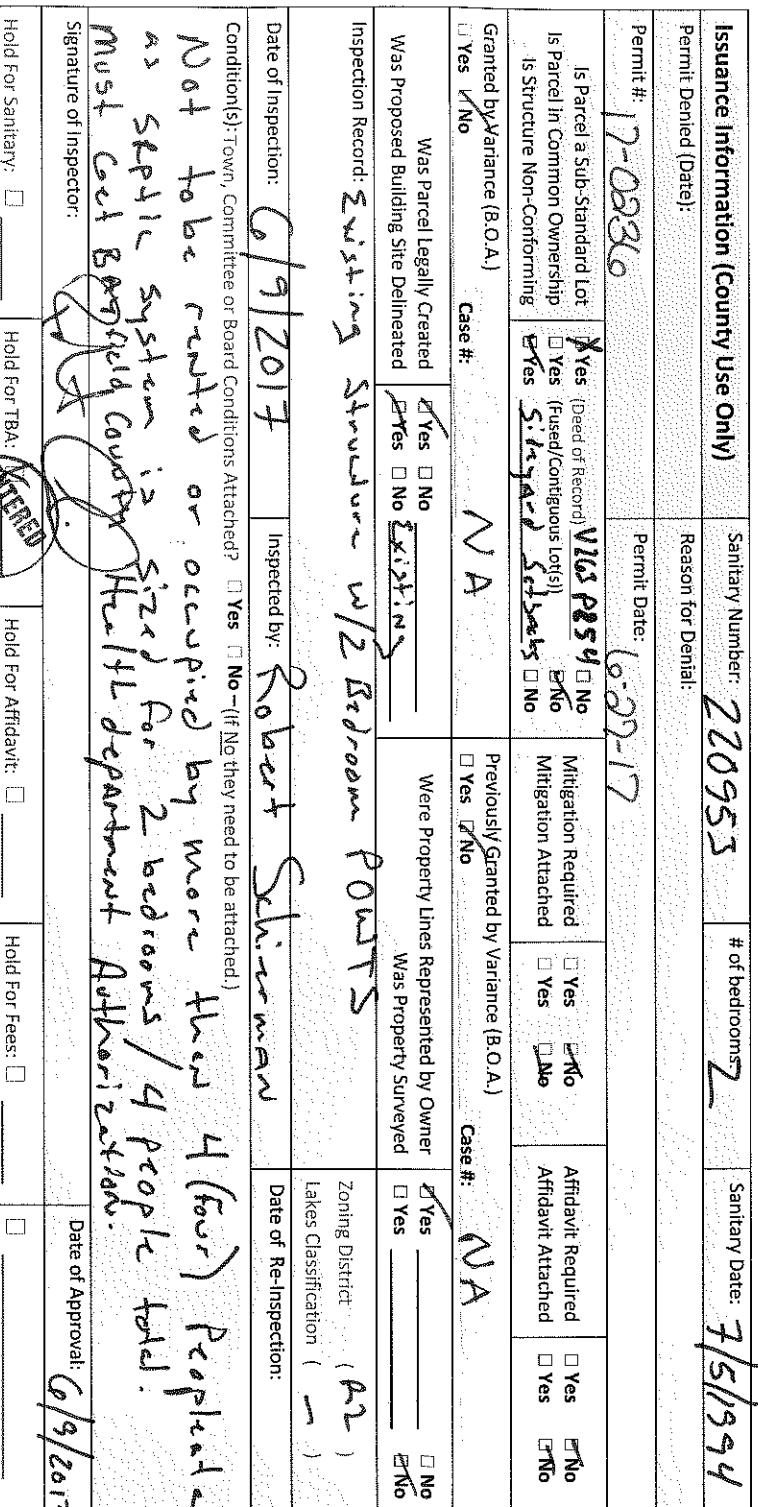 Issuance Information (County Use Only)
Sanitary Number: 220953
# of bedrooms: 2
Sanitary Date: 7/5/1994
Permit Denied (Date):
Reason for Denial:
Permit #: 17-0236
Permit Date: 6-27-17
Is Parcel a Sub-Standard Lot
Is Parcel in Common Ownership
Is Structure Non-Conforming
☒ Yes (Deed of Record) V763 P854 ☐ No
☐ Yes (Fused/Contiguous Lot(s)) ☑ No
☑ Yes Sideyard Setbacks ☐ No
Mitigation Required ☐ Yes ☑ No
Mitigation Attached ☐ Yes ☑ No
Affidavit Required ☐ Yes ☑ No
Affidavit Attached ☐ Yes ☑ No
Granted by Variance (B.O.A.)
☐ Yes ☑ No Case #: NA
Previously Granted by Variance (B.O.A.)
☐ Yes ☑ No Case #: NA
Was Parcel Legally Created ☑ Yes ☐ No
Was Proposed Building Site Delineated ☑ Yes ☐ No Existing
Were Property Lines Represented by Owner ☑ Yes ☐ No
Was Property Surveyed ☐ Yes ☑ No
Inspection Record: Existing Structure w/2 Bedroom POWTS
Zoning District ( R2 )
Lakes Classification ( - )
Date of Inspection: 6/9/2017
Inspected by: Robert Schierman
Date of Re-Inspection:
Condition(s): Town, Committee or Board Conditions Attached? ☐ Yes ☐ No – (If No they need to be attached.)
Not to be rented or occupied by more then 4 (four) People at a
as septic system is sized for 2 bedrooms / 4 people total.
Must Get Bayfield County Health department Authorization.
Signature of Inspector:
Date of Approval: 6/9/2017
Hold For Sanitary: ☐
Hold For TBA:
Hold For Affidavit: ☐
Hold For Fees: ☐
☐